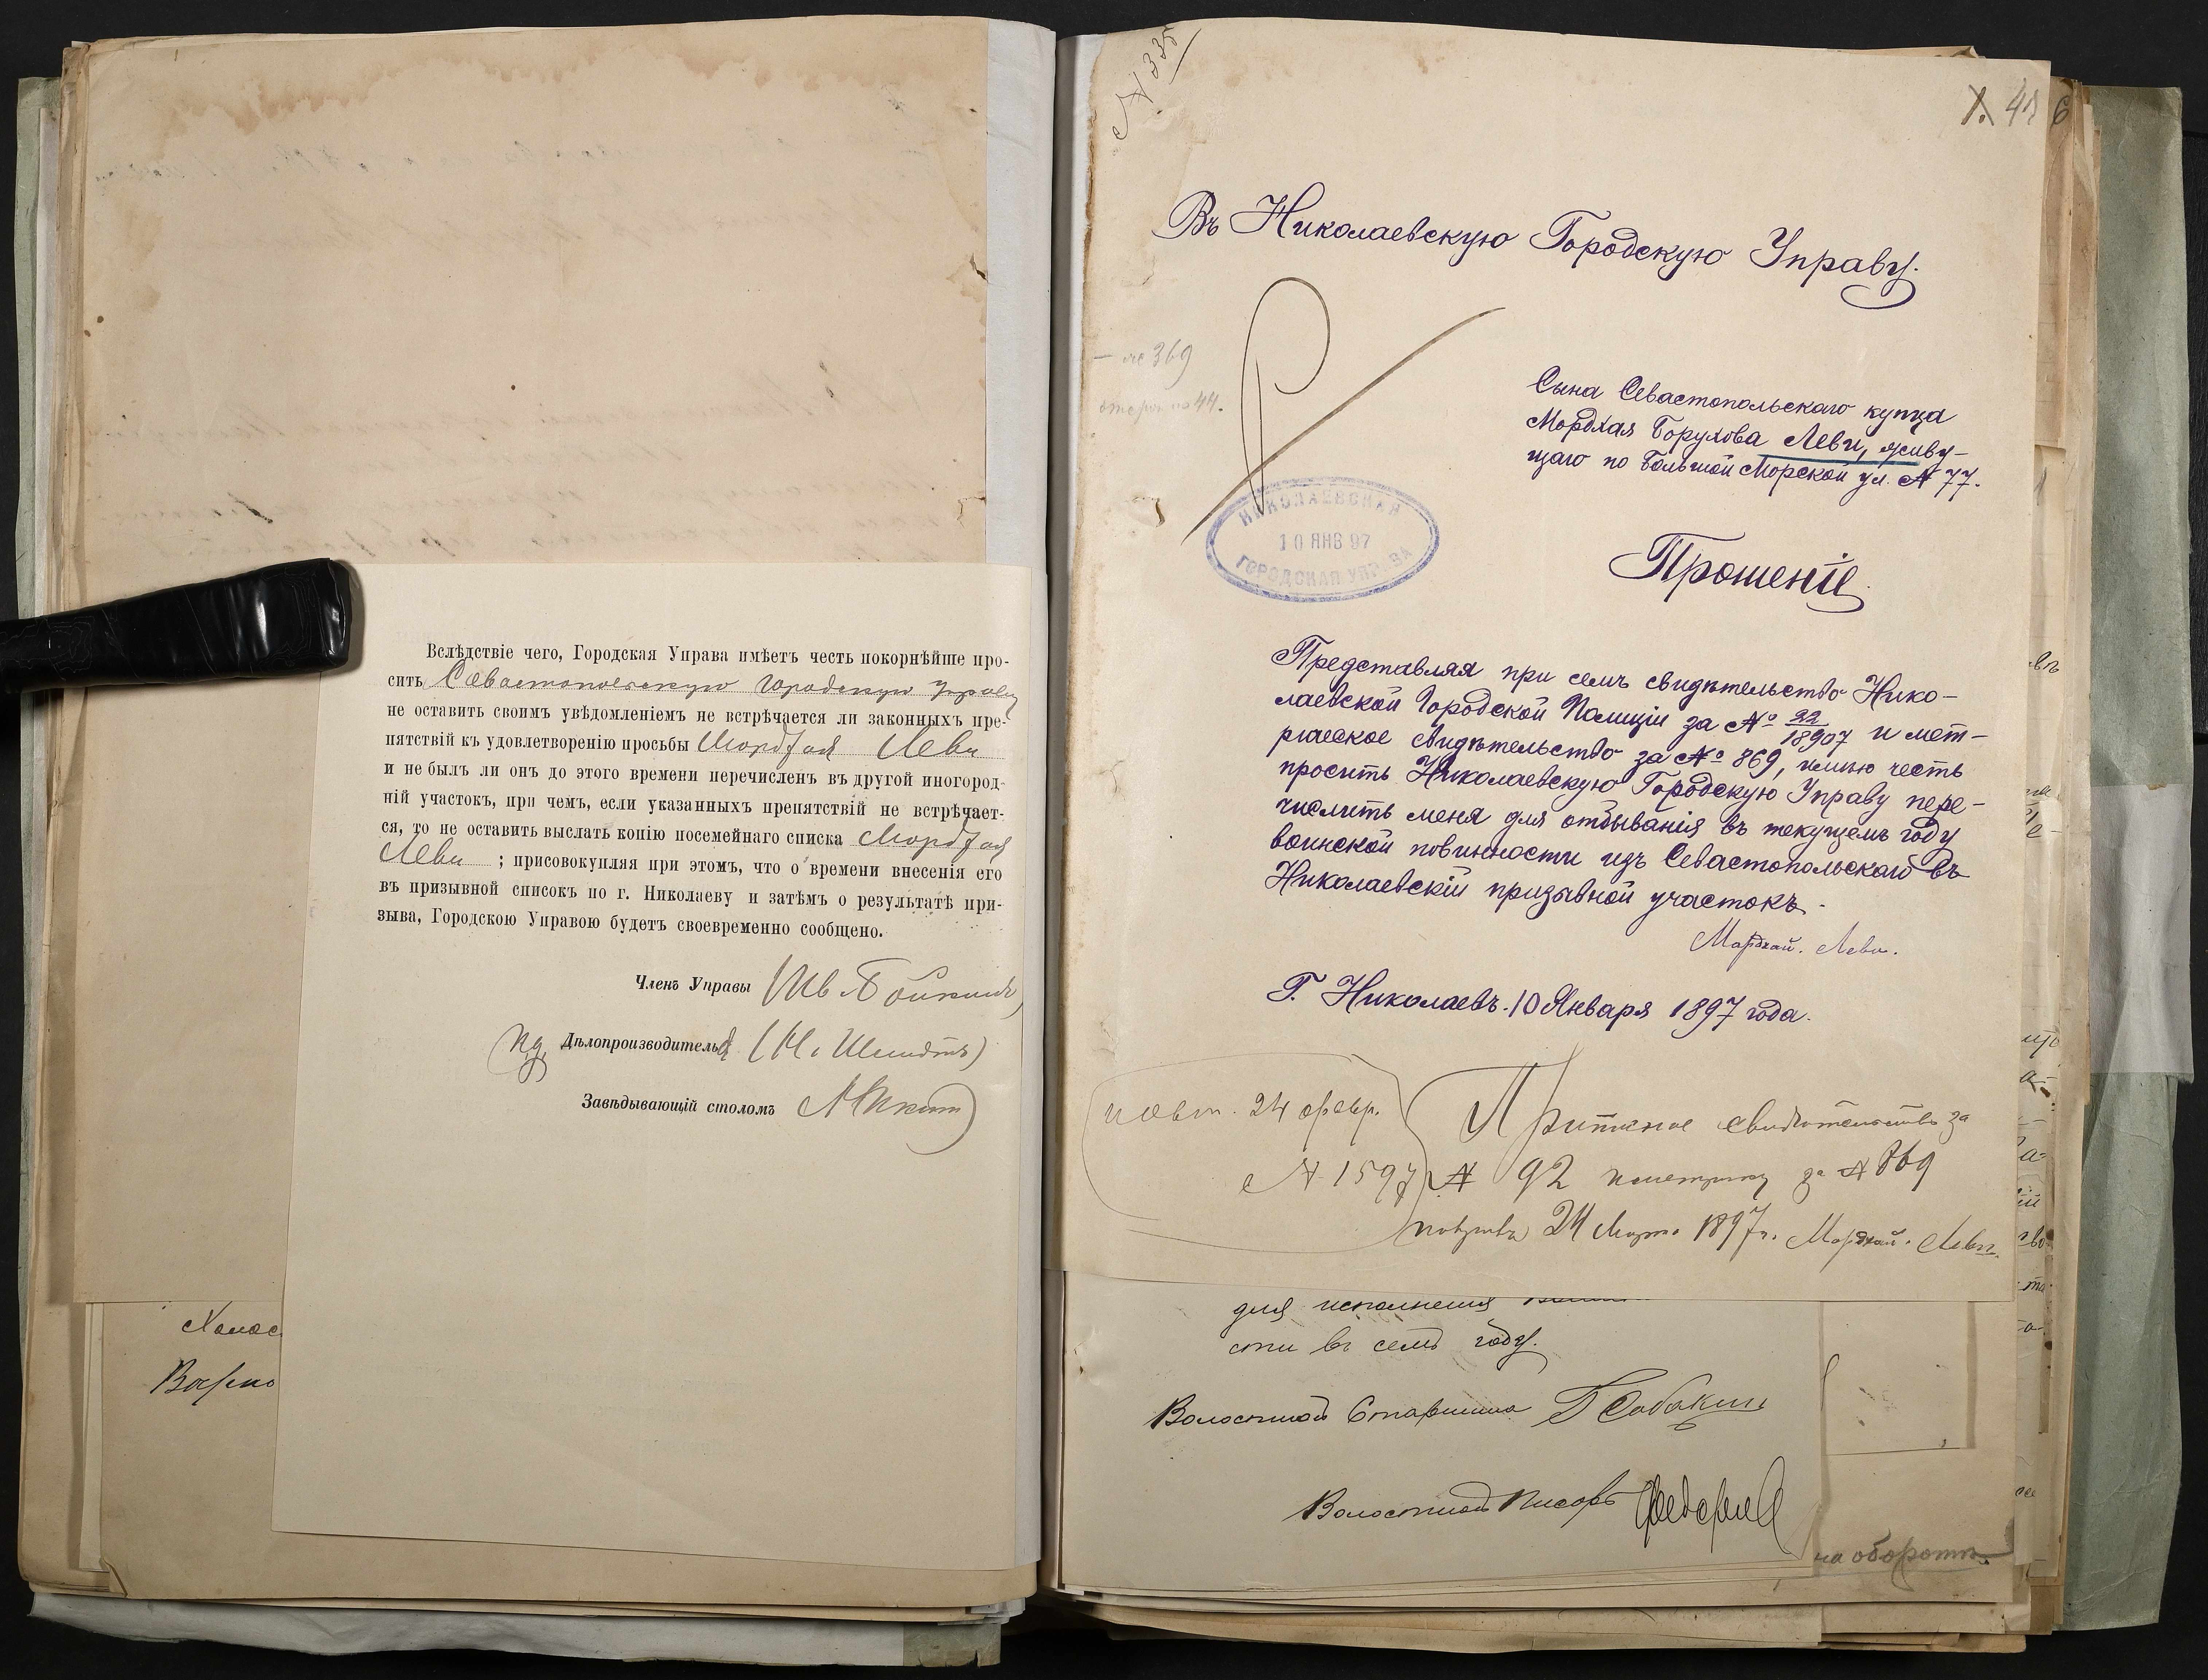 Вслѣдствіе чего, Городская Управа имѣетъ честь покорнѣйше про-
сить Севастопольскую Городскую Управу
не оставить своимъ увѣдомленіемъ не встрѣчается ли законныхъ пре-
пятствій къ удовлетворенію просьбы Мордхая Леви
и не былъ ли онъ до этого времени перечисленъ въ другой иногород-
ній участокъ, при чемъ, если указанныхъ препятствій не встрѣчает-
ся, то не оставить выслать копію посемейнаго списка Мордхая
Леви ; присовокупляя при этомъ, что о времени внесенія его
въ призывной списокъ по г. Николаеву и затѣмъ о результатѣ при-
зыва, Городскою Управою будетъ своевременно сообщено.
Членъ Управы
Дѣлопроизводитель
Завѣдывающій столомъ
№ 335
Въ Николаевскую Городскую Управу.
369
44.
Сына Севастопольскаго купца
Мордхая Борухова Леви, живу-
щаго по Большой Морской ул. № 77.
НИКОЛАЕВСКАЯ
10 ЯНВ 97
ГОРОДСКАЯ УПРАВА
Прошеніе.
Представляя при семъ свидѣтельство Нико-
лаевской Городской Полиціи за № 22/18907 и мет-
рическое свидѣтельство за № 869, имѣю честь
просить Николаевскую Городскую Управу пере-
числить меня для отбыванія въ текущемъ году
воинской повинности изъ Севастопольскаго въ
Николаевскій призывной участокъ.
Мордхай. Леви.
Г. Николаевъ. 10 Января 1897 года.
24 февр.
№ 1597
Приписное свидѣтельство за
№ 92 и метрику за № 869
получилъ 24 Марта 1897 г. Мордхай. Леви.
для исполненія
сти въ семъ году.
Волостной Старшина
Волостной Писарь
на оборотѣ.